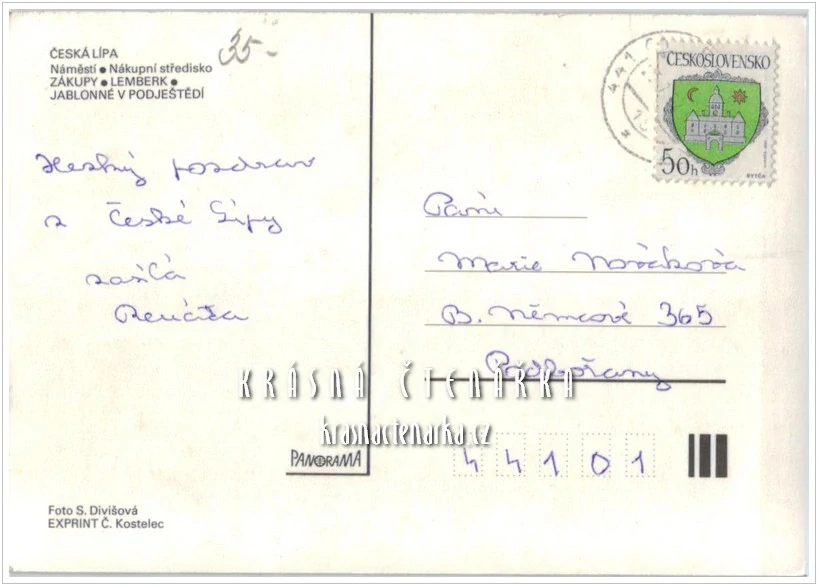 ČESKÁ LÍPA
Náměstí ● Nákupní středisko
ZÁKUPY ● LEMBERK ●
JABLONNÉ V PODJEŠTĚDÍ
35-
Hezký pozdrav
z České Lípy
zasílá
Renáta
441 0
ČESKOSLOVENSKO
50h
BYTČA
Paní
Marie Nováková
B. Němcové 365
Podbořany
KRÁSNÁ ČTENÁŘKA
krasnactenarka.cz
PANORAMA
44101
Foto S. Divišová
EXPRINT Č. Kostelec